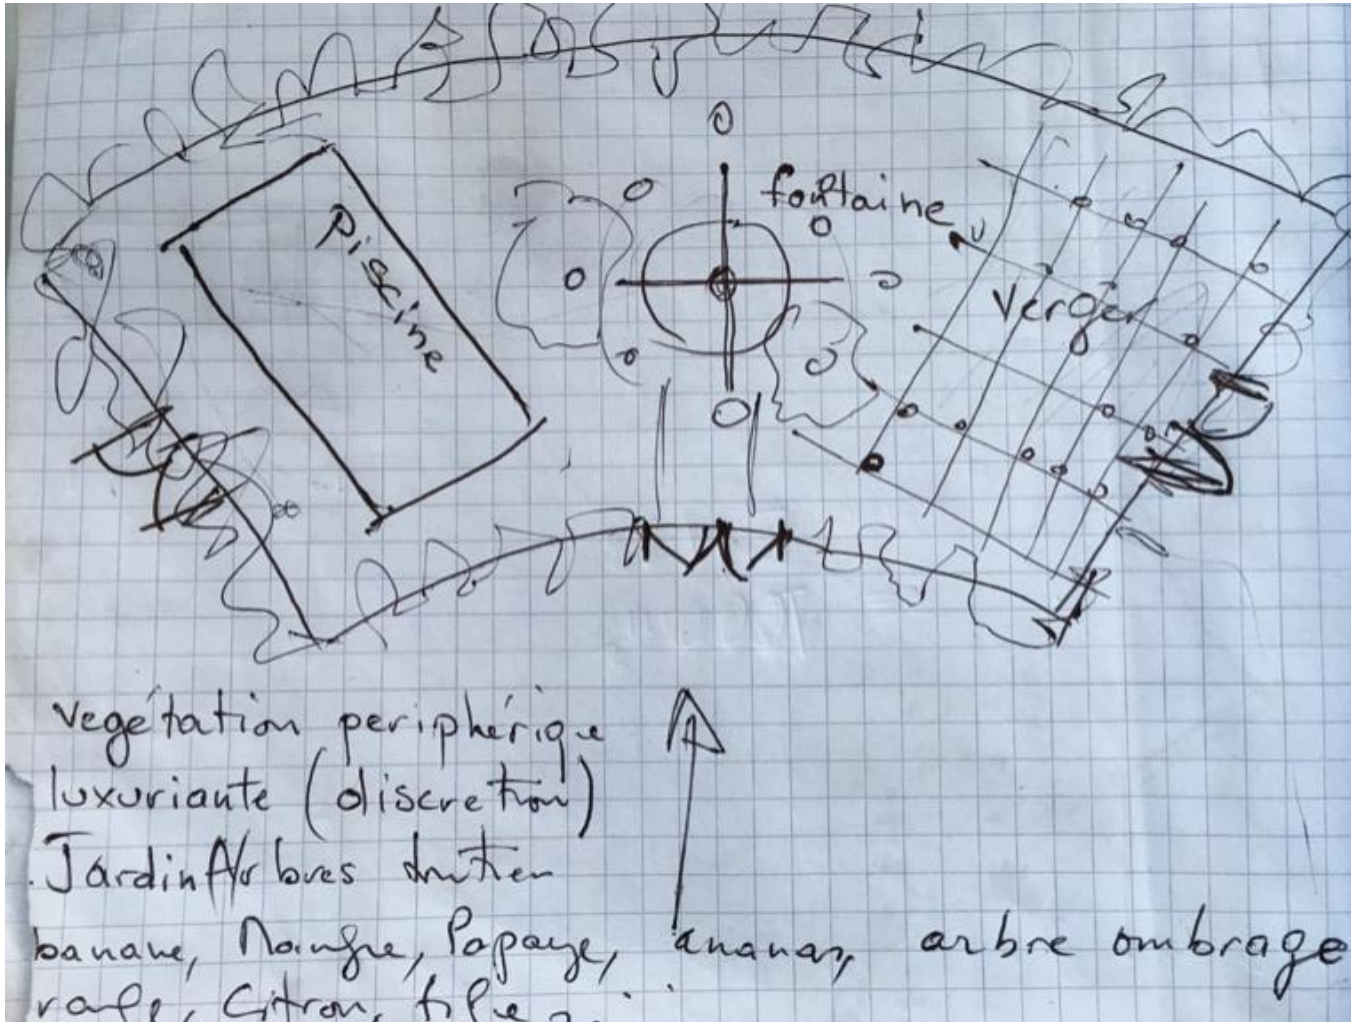 Piscine
fontaine
Verger
végétation periphérique
luxuriante (discretion)
Jardin Arbres
banane, Mangue, Papaye, ananas, arbre ombrage
Citron,